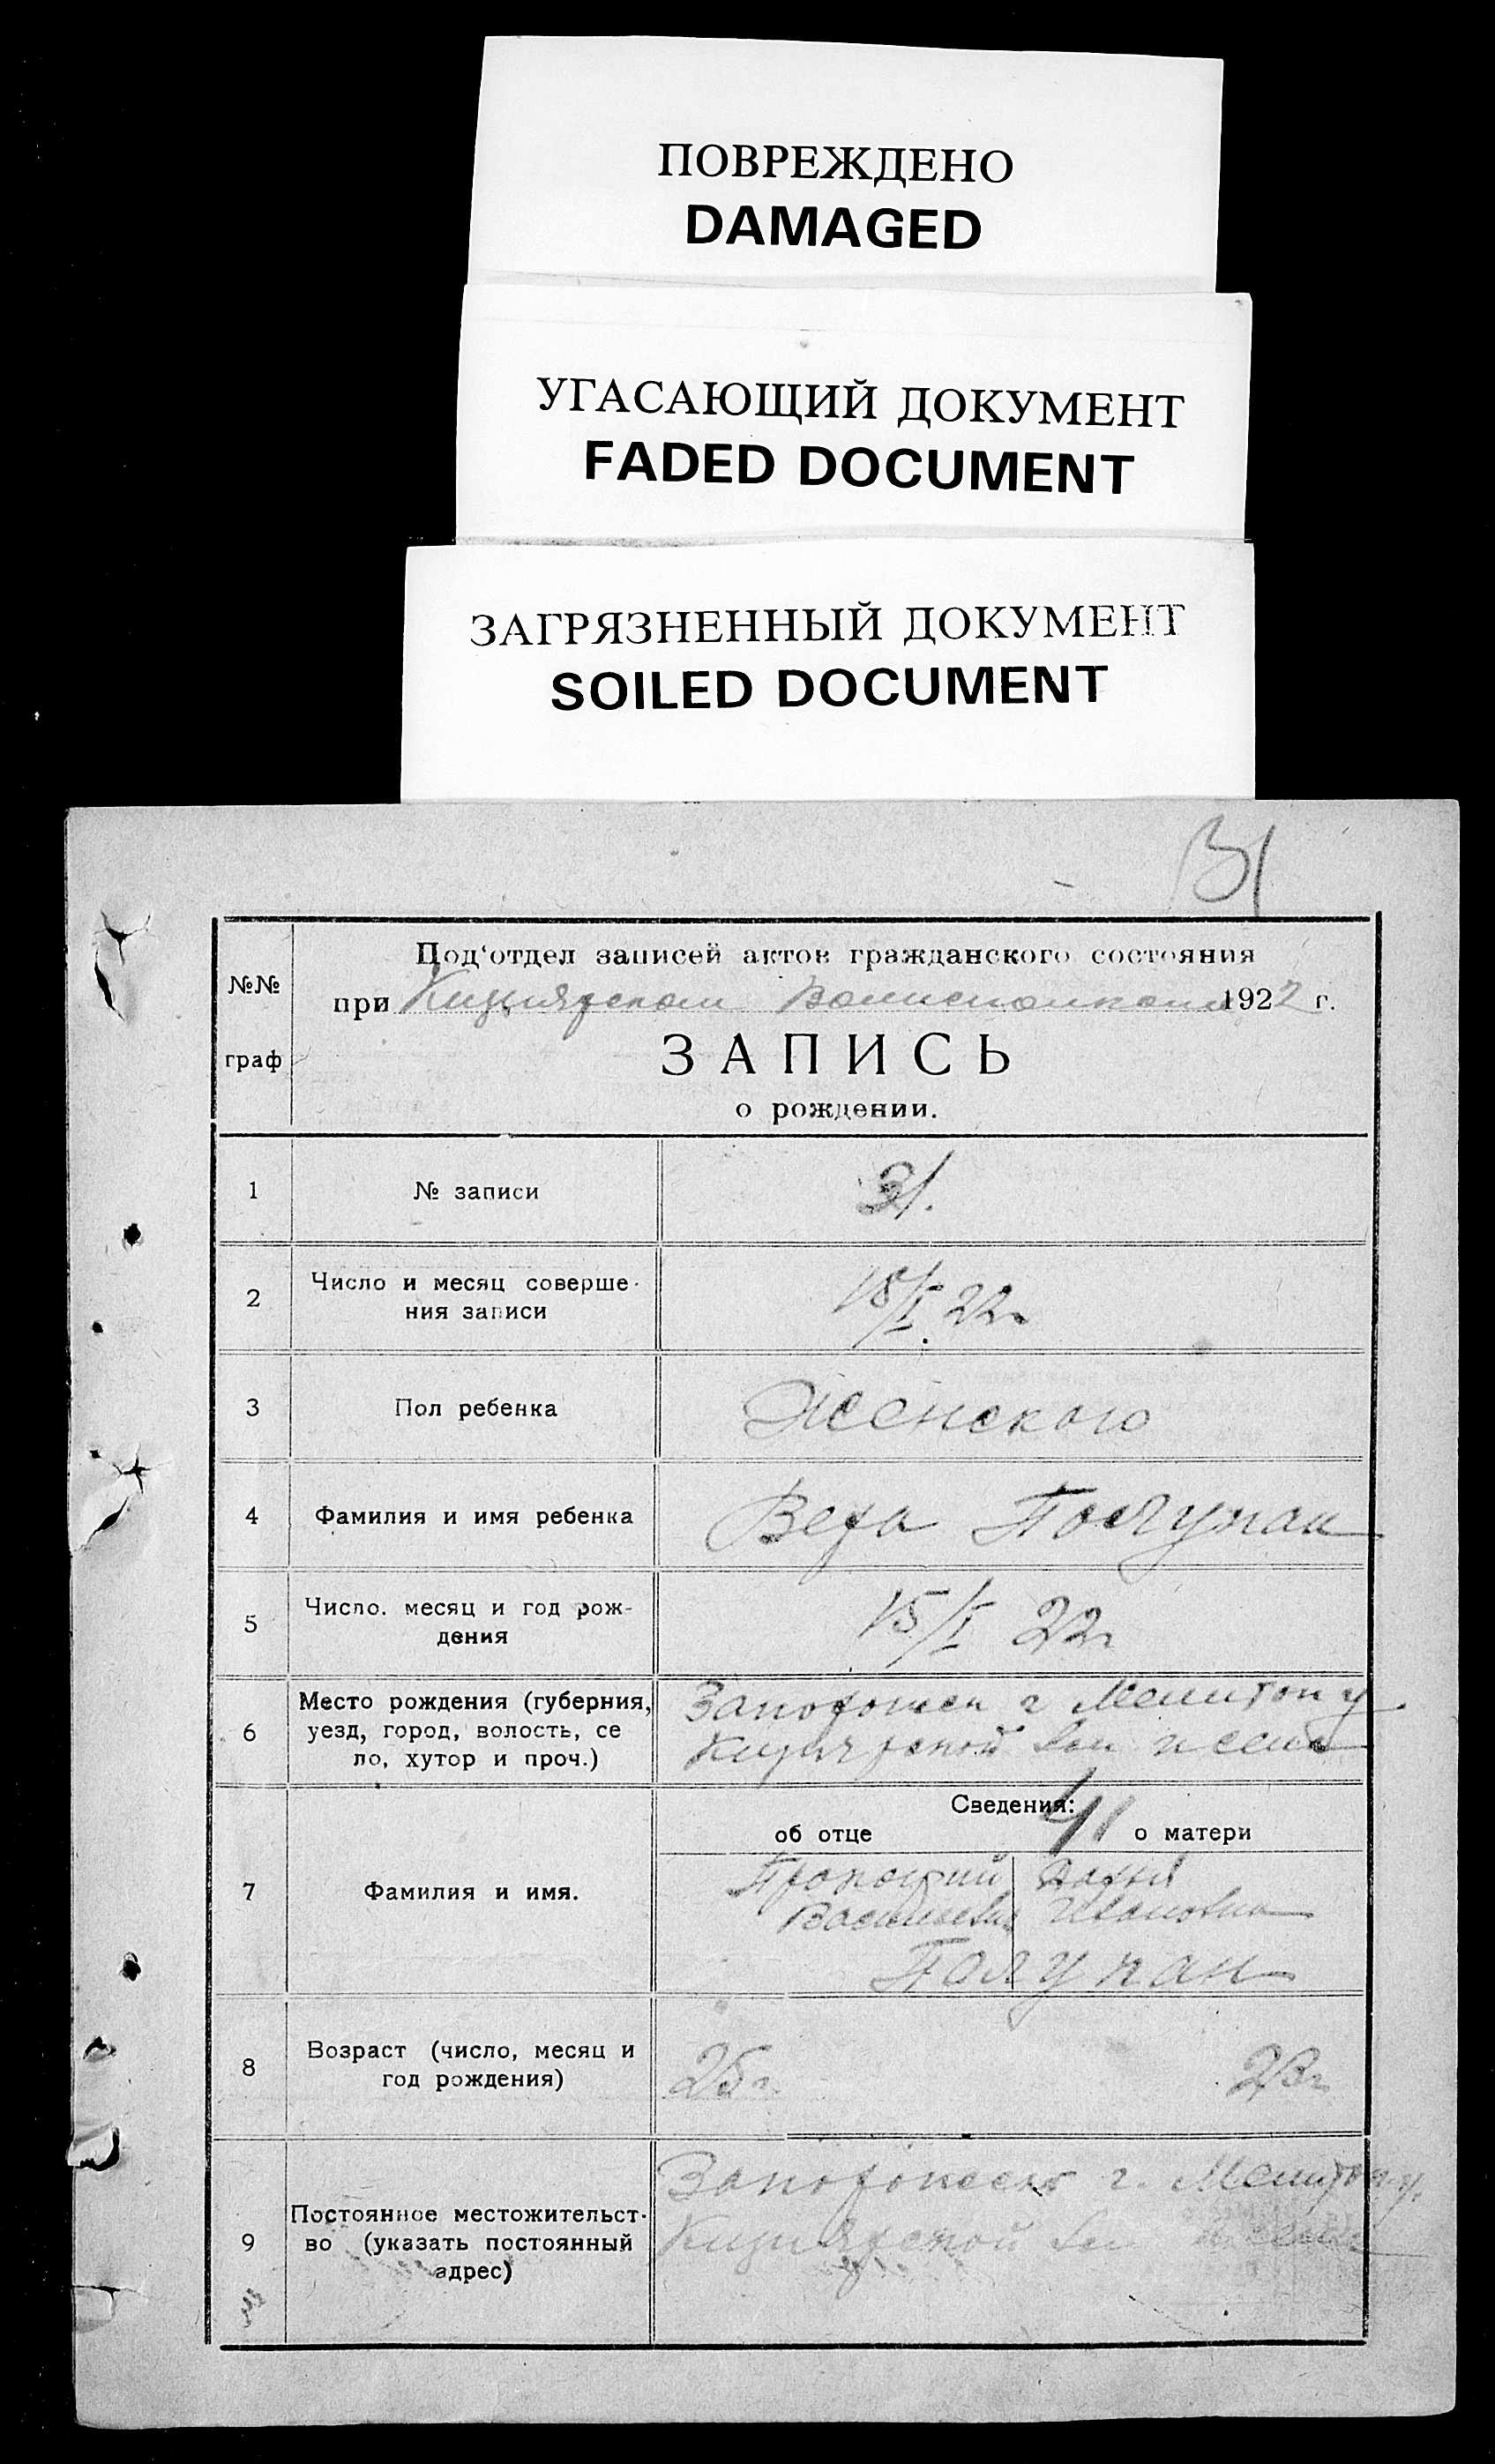 ПОВРЕЖДЕНО
DAMAGED
УГАСАЮЩИЙ ДОКУМЕНТ
FADED DOCUMENT
ЗАГРЯЗНЕННЫЙ ДОКУМЕНТ
SOILED DOCUMENT
31
№№
граф
Под‘отдел записей актов гражданского состояния
при Кизиярском Волисполкоме 1922 г.
ЗАПИСЬ
о рождении.
1 № записи 31.
2 Число и месяц соверше-
ния записи
18/I 22г
3 Пол ребенка Женского
4 Фамилия и имя ребенка Вера Полупан
5 Число. месяц и год рож-
дения
15/I 22г
6 Место рождения (губерния,
уезд, город, волость, се
ло, хутор и проч.)
Запорожск г Мелитоп у
Кизиярской вол и села
Сведения:
об отце 41 о матери
7 Фамилия и имя.
Прокофий Дарья
Васильевич Ивановна
Полупан
8 Возраст (число, месяц и
год рождения)
25г. 23г
9 Постоянное местожительст-
во (указать постоянный
адрес)
Запорожск г. Мелитоп у.
Кизиярской вол и села